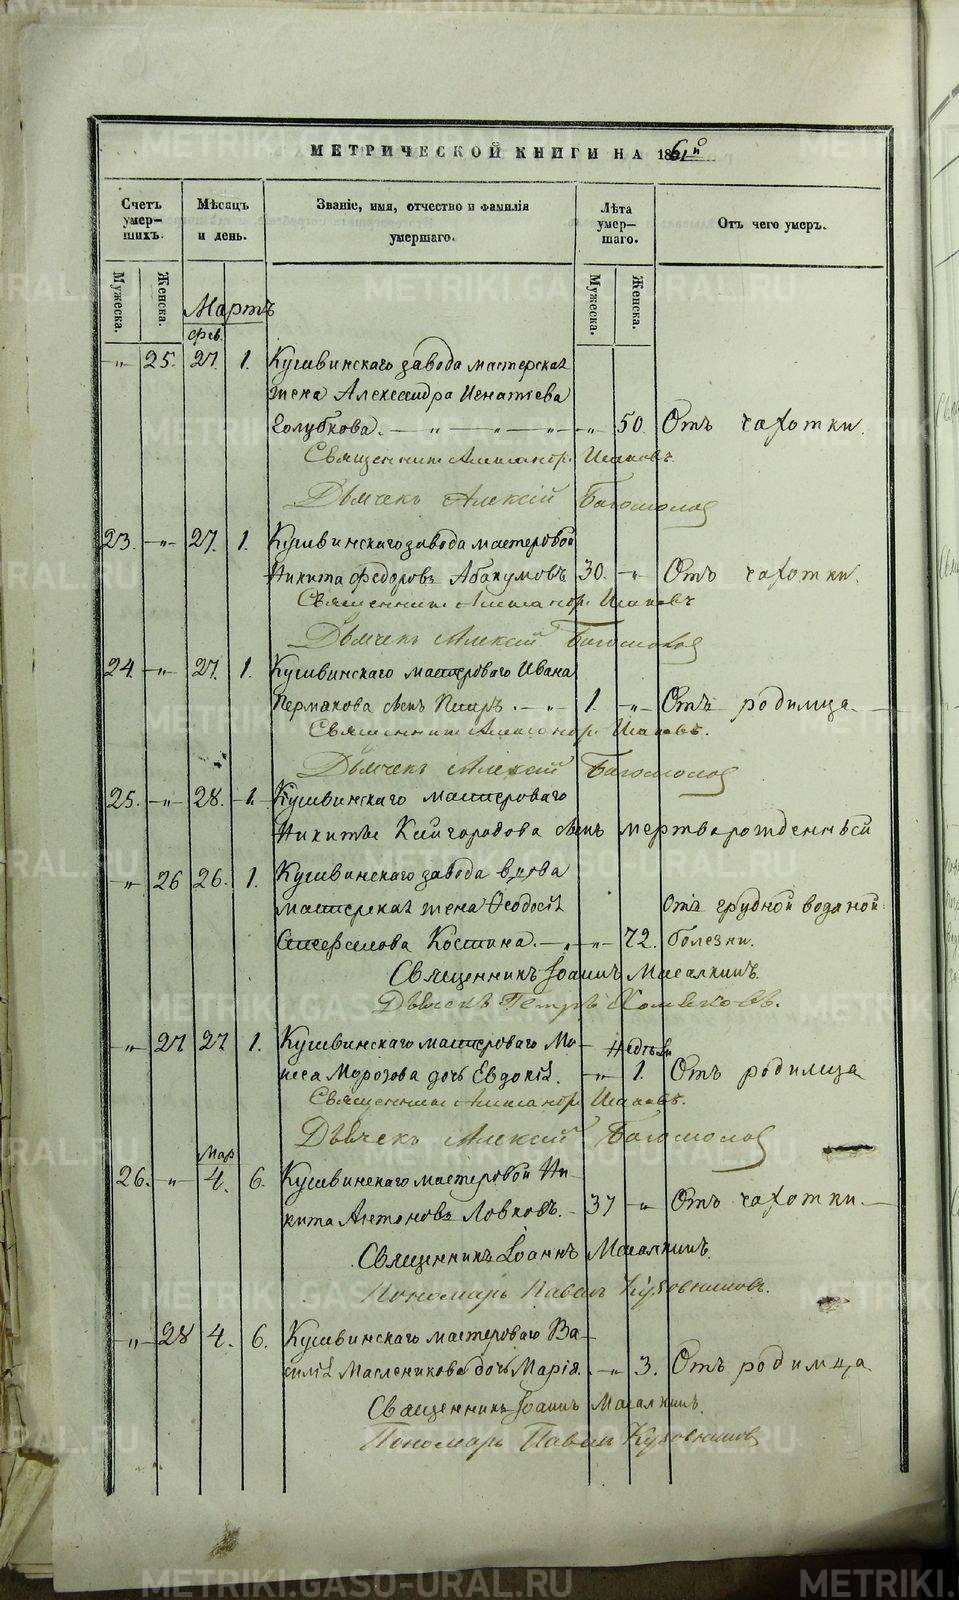 МЕТРИЧЕСКОЙ КНИГИ НА 1861й
Счетъ умер- шихъ.
Мѣсяцъ и день.
Званіе, имя, отчество и фамилія умершаго.
Лѣта умер- шаго.
Отъ чего умеръ.
Мужеска. Женска. Мужеска. Женска.
Мартъ
Фев.
" 25. 27. 1. Кушвинскаго завода мастерская
жена Александра Игнатьева
Голубкова. — " — " — " — " — 50. Отъ чахотки.
Священникъ Александръ
Дьячекъ Алексій Богомолов
23. —"— 27. 1. Кушвинскаго завода мастеровой
Никита Федоровъ Абакумовъ 30. —" Отъ чахотки.
Священникъ Александръ
Дьячекъ Алексій Богомолов
24. —"— 27. 1. Кушвинскаго мастероваго Ивана
Пермакова сынъ Петръ. — " — 1. —"— Отъ родимца —
Священникъ Александръ
Дьячекъ Алексій Богомолов
25. —"— 28. 1. Кушвинскаго мастероваго
Никиты Кайгородова сынъ мертворожденный
—"— 26 26. 1. Кушвинскаго завода вдова
мастерская жена Ѳеодосія
Костина. — " —"— 72. Отъ грудной водяной болезни.
Священникъ Іоаннъ Масалкинъ.
Дьячекъ Петръ Хомяковъ.
—"— 27 27 1. Кушвинскаго мастероваго Мо-
исея Морозова дочь Евдокія. —"— Недѣли 1. Отъ родимца
Священникъ Александръ
Дьячекъ Алексій Богомолов
Мар
26. —"— 4. 6. Кушвинскаго мастеровой Ни-
кита Антоновъ Ловковъ. — 37 —"— Отъ чахотки. —
Священникъ Іоаннъ Масалкинъ.
Пономарь Павелъ
—"— 28 4. 6. Кушвинскаго мастероваго Ва-
силія Масленикова дочь Марія. —"— 3. Отъ родимца
Священникъ Іоаннъ Масалкинъ.
Пономарь Павелъ
METRIKI.GASO-URAL.RU